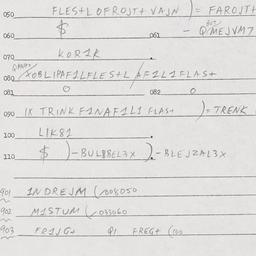 050 FLES+LOFROJT+ VAJN ) = FAROJT+
060 $ 061 - Q/MEJVM7
070 KOR1R
080 XOBLIPAF1LFLES+L AF1L1FLAS+
081 O 082 O
090 IX TRINK F1NAF1L1 FLAS+ ) = TRENK
100 LIK81
110 $ ) - BULBBEL3X ) - BLEJZAL3X
901 1NDREJM (/008,050
902 M1STUM (/033060
903 FR1JG+ Q1 FREG+